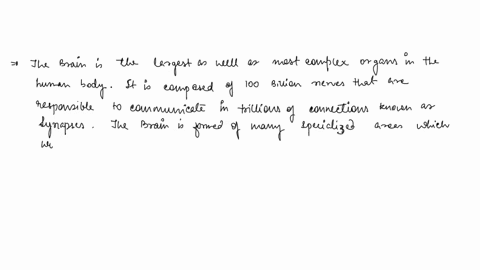 ⇒ The Brain is the largest as well as most complex organs in the
human body. It is composed of 100 Billion nerves that are
responsible to communicate in trillions of connections known as
Synapses. The Brain is formed of many specialized areas which
wr